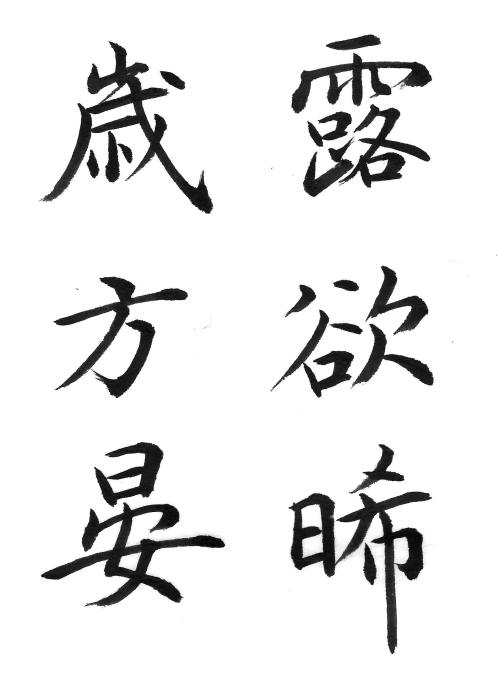 露欲晞
歳方晏